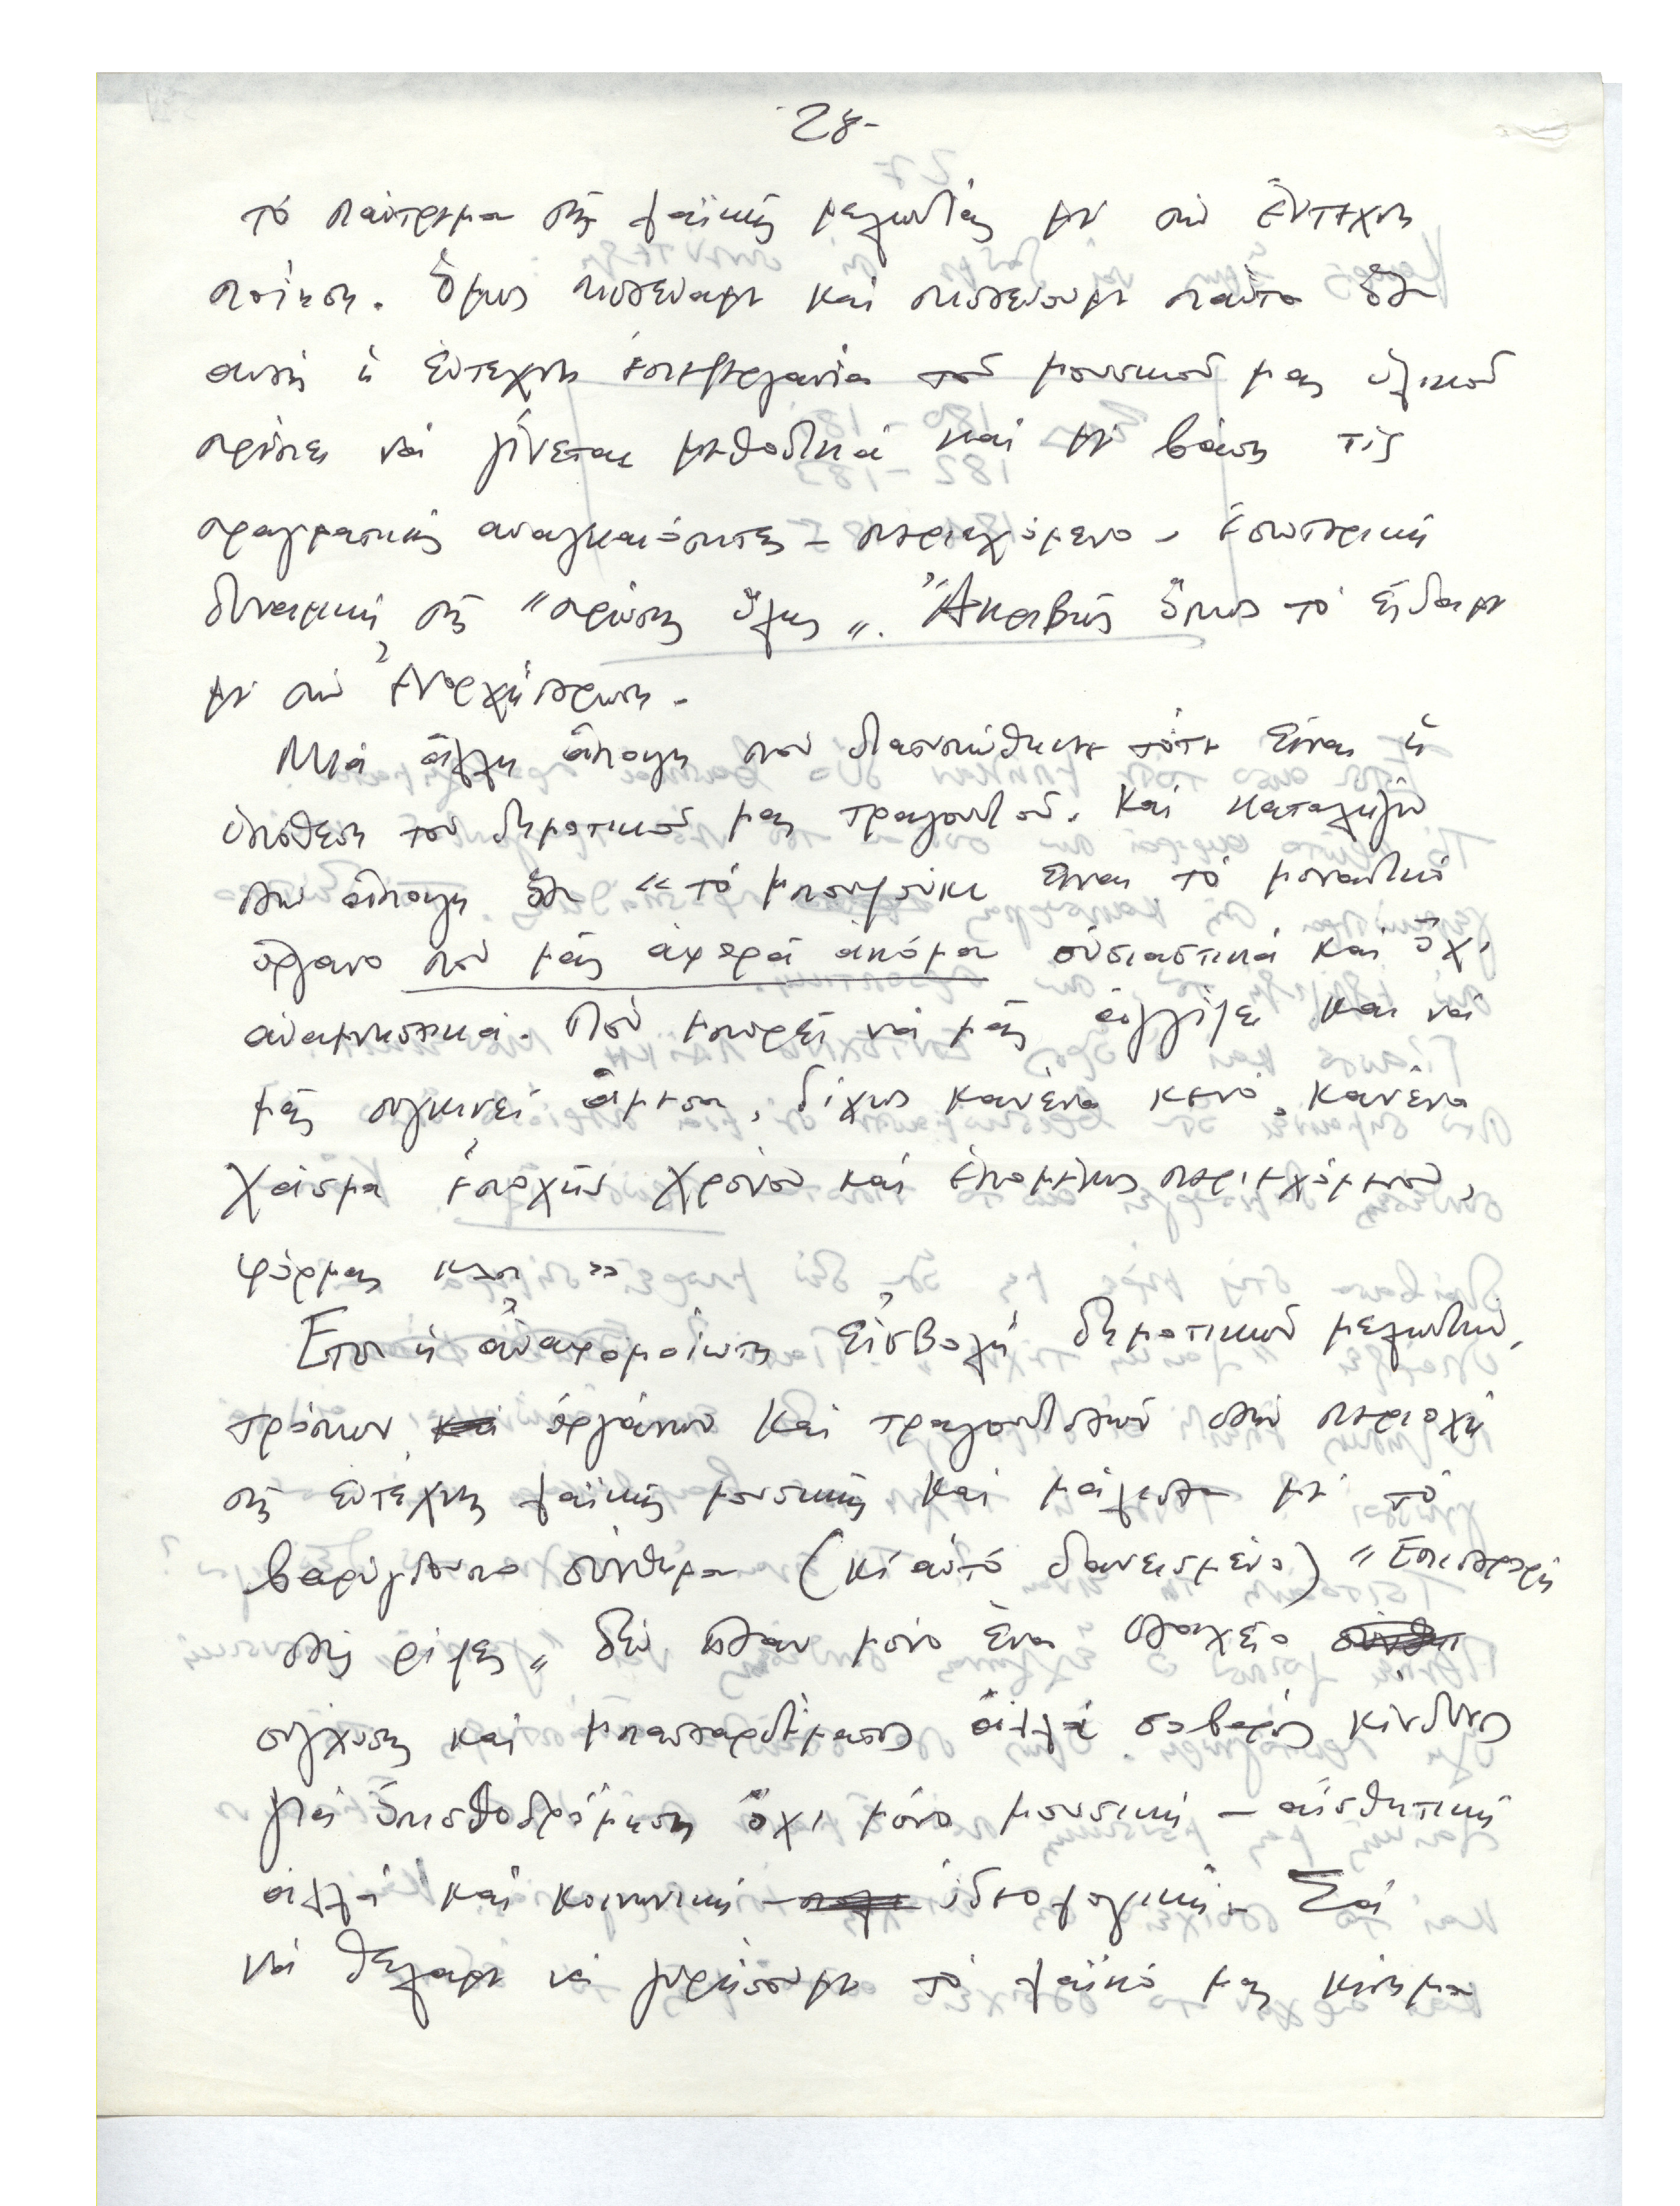 28-
τό πάντρεμα τῆς λαϊκῆς μελωδίας μέ τήν ἔντεχνη
ποίηση. Ὅμως πιστεύαμε καί πιστεύουμε πάντα ὅτι
αυτή ἡ ἔντεχνη ἐπεξεργασία τοῦ μουσικοῦ μας ὑλικοῦ
πρέπει νά γίνεται μεθοδικά καί μέ βάση τίς
πραγματικές αναγκαιότητες - περιεχόμενο - ἐσωτερική
δυναμική τῆς "πρώτης ὕλης". Ἀκριβῶς ὅπως τό εἴδαμε
μέ τήν ἐνορχήστρωση.
Μιά ἄλλη ἄποψη πού διατυπώθηκε τότε εἶναι ἡ
ὑπόθεση τοῦ δημοτικοῦ μας τραγουδιοῦ. Καί καταλήγω
στήν ἄποψη ὅτι «τό μπουζούκι εἶναι τό μοναδικό
ὄργανο πού μᾶς ἀφορᾶ ἀκόμα οὐσιαστικά καί ὄχι
ἀναμνηστικά. Πού μπορεῖ νά μᾶς ἀγγίξει καί νά
μᾶς συγκινεῖ ἄμεσα, δίχως κανένα κενό, κανένα
χάσμα ἐποχῆς χρόνου καί ἑπομένως περιεχομένου,
φόρμας κλπ »
Ετσι ἡ ἀναφομοίωτη εἰσβολή δημοτικῶν μελωδιῶν,
τρόπων ὀργάνων καί τραγουδιστῶν στήν περιοχή
τῆς ἔντεχνης λαϊκῆς μουσικῆς καί μάλιστα μέ τό
βαρύγδουπο σύνθημα (κι αὐτό δανεισμένο) "Επιστροφή
στίς ρίζες" δέν ἦταν μόνο ἕνα στοιχεῖο
σύγχυσης καί μπασταρδέματος ἀλλά σοβαρός κίνδυνος
γιά ὀπισθοδρόμηση ὄχι μόνο μουσική - αἰσθητική
ἀλλά καί κοινωνική - ἰδεολογική. Σά
νά θέλαμε νά γυρίσουμε τό λαϊκό μας κίνημα